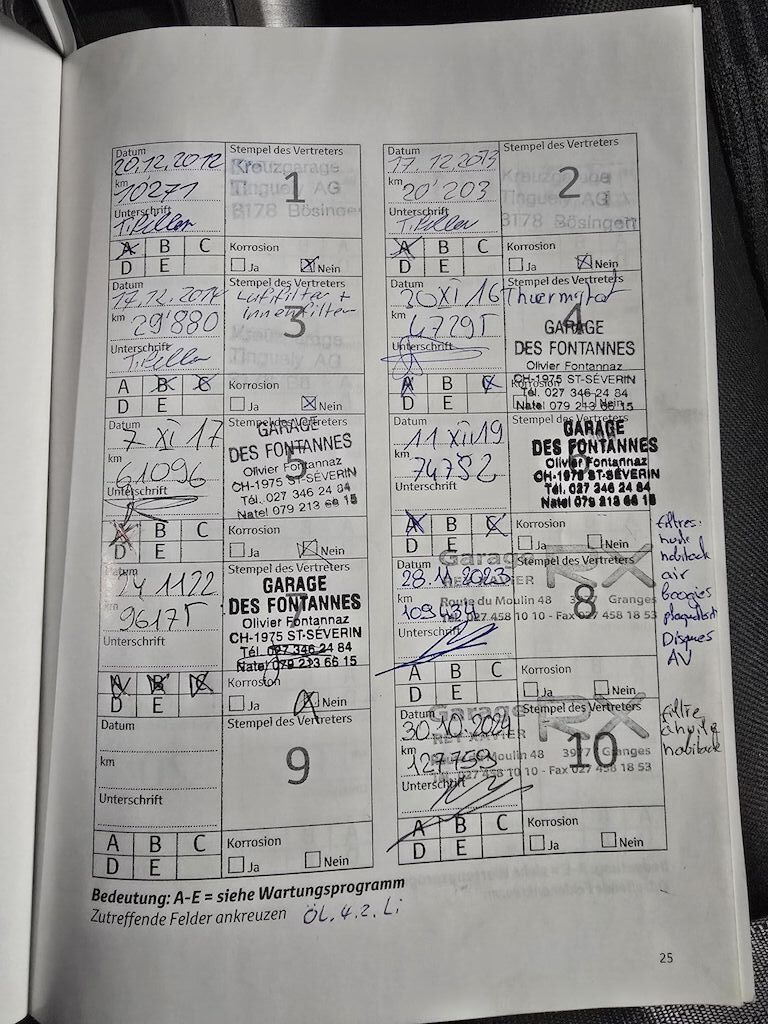 Datum
20.12.2012
km
10271
Unterschrift
Stempel des Vertreters
1
Kreuzgarage
Tinguely AG
3178 Bösingen
A B C
D E
Korrosion
Ja Nein
Datum
17.12.2013
km
20'203
Unterschrift
Stempel des Vertreters
2
Kreuzgarage
Tinguely AG
3178 Bösingen
A B C
D E
Korrosion
Ja Nein
Datum
17.12.2014
km
29'880
Unterschrift
Stempel des Vertreters
Luftfilter +
Innenfilter
3
Tinguely AG
A B C
D E
Korrosion
Ja Nein
Datum
30 XI 16
km
47295
Unterschrift
Stempel des Vertreters
4
GARAGE
DES FONTANNES
Olivier Fontannaz
CH-1975 ST-SÉVERIN
Tél. 027 346 24 84
Natel 079 213 66 15
A B C
D E
Korrosion
Ja Nein
Datum
7 XI 17
km
61096
Unterschrift
Stempel des Vertreters
5
GARAGE
DES FONTANNES
Olivier Fontannaz
CH-1975 ST-SÉVERIN
Tél. 027 346 24 84
Natel 079 213 66 15
A B C
D E
Korrosion
Ja Nein
Datum
11 XII 19
km
74782
Unterschrift
Stempel des Vertreters
GARAGE
DES FONTANNES
Olivier Fontannaz
CH-1975 ST-SÉVERIN
Tél. 027 346 24 84
Natel 079 213 66 15
A B C
D E
Korrosion
Ja Nein
Datum
24 11 22
km
96175
Unterschrift
Stempel des Vertreters
7
GARAGE
DES FONTANNES
Olivier Fontannaz
CH-1975 ST-SÉVERIN
Tél. 027 346 24 84
Natel 079 213 66 15
A B C
D E
Korrosion
Ja Nein
Datum
28.11.2023
km
109434
Unterschrift
Stempel des Vertreters
8
Garage RX
REY XAVIER
Route du Moulin 48 3977 Granges
Tél. 027 458 10 10 - Fax 027 458 18 53
A B C
D E
Korrosion
Ja Nein
filtres:
huile
habitacle
air
boogies
Disques
AV
Datum
km
Unterschrift
Stempel des Vertreters
9
A B C
D E
Korrosion
Ja Nein
Datum
30.10.2024
km
127759
Unterschrift
Stempel des Vertreters
10
Garage RX
REY XAVIER
Route du Moulin 48 3977 Granges
Tél. 027 458 10 10 - Fax 027 458 18 53
A B C
D E
Korrosion
Ja Nein
filtre
à huile
habitacle
Bedeutung: A-E = siehe Wartungsprogramm
Zutreffende Felder ankreuzen ÖL. 4.2. Li
25